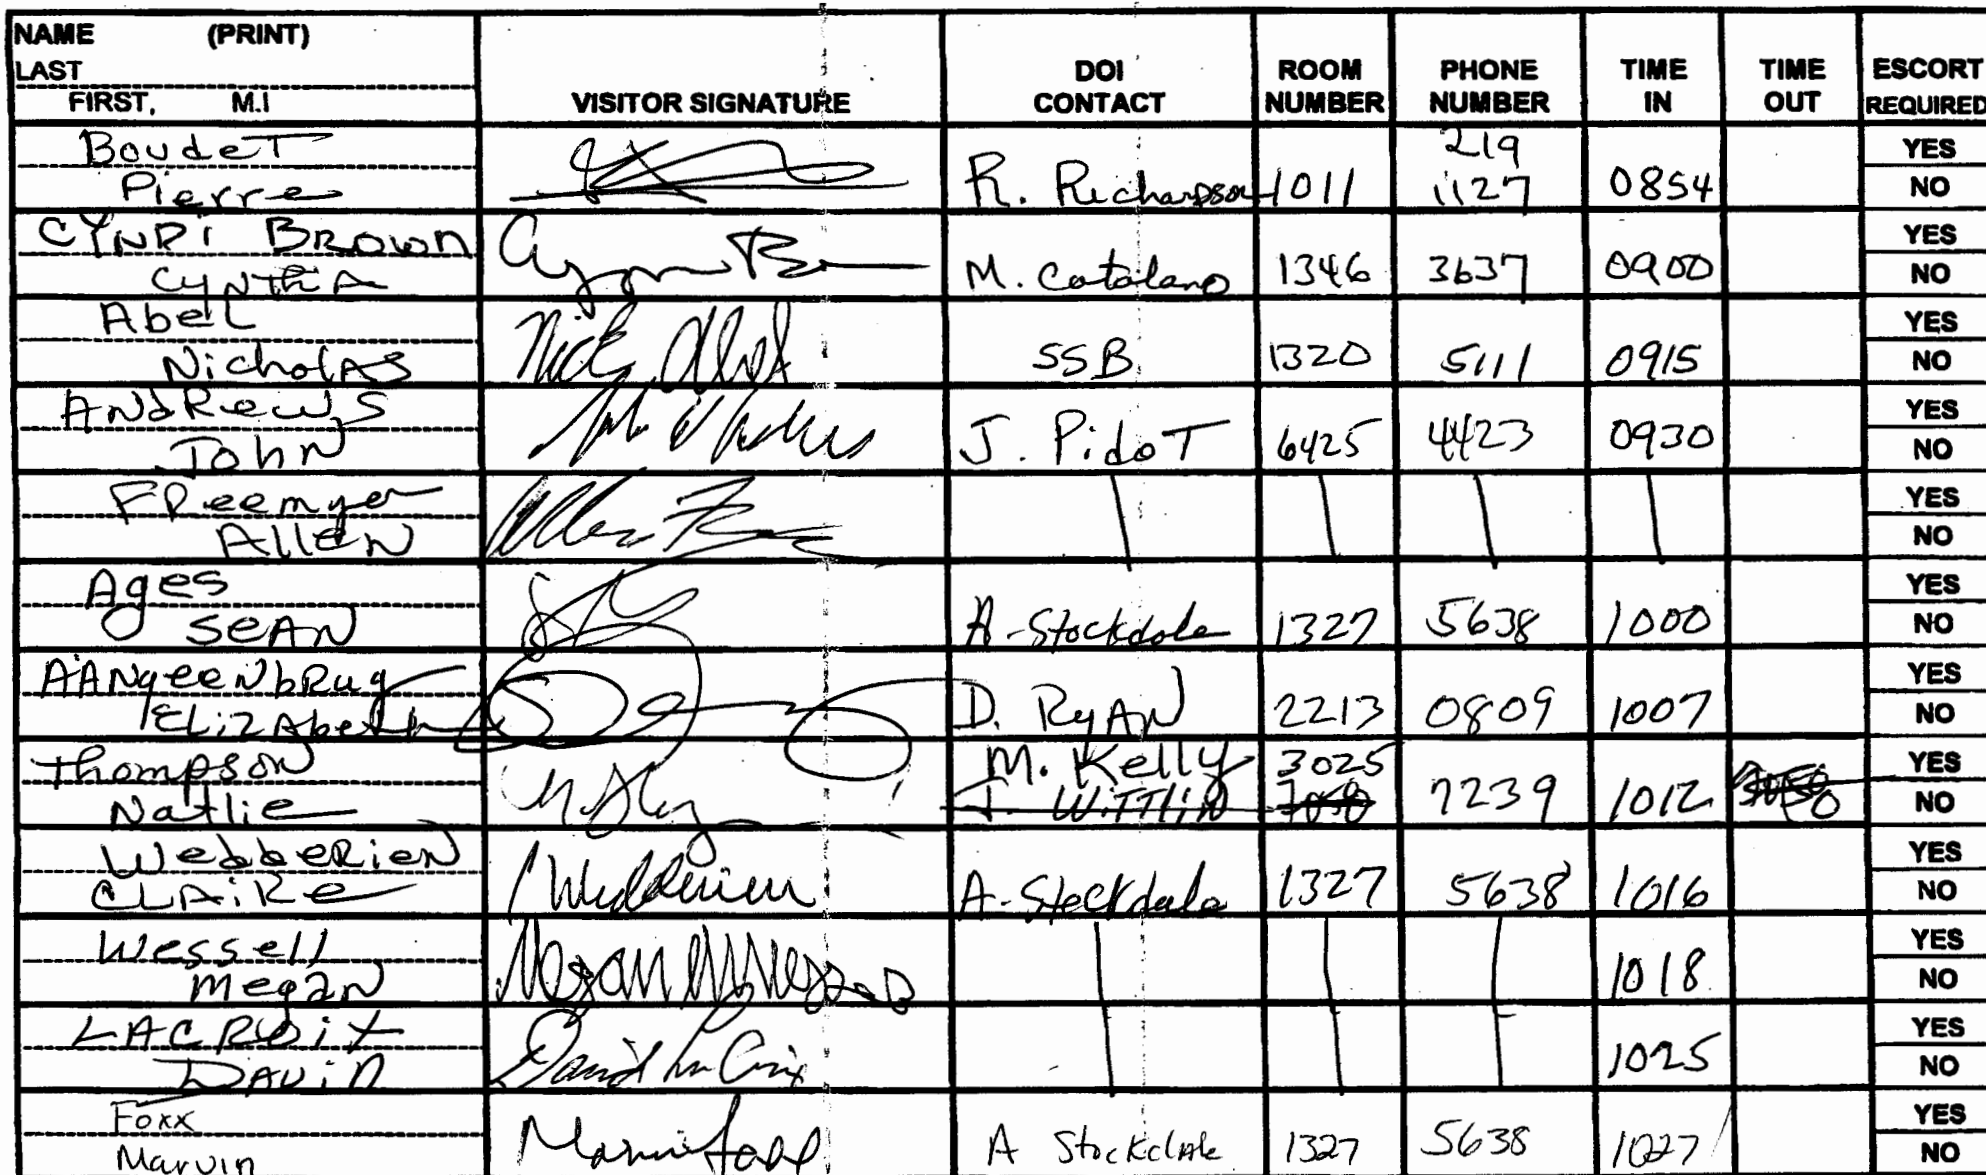 NAME (PRINT)
LAST
FIRST, M.I
VISITOR SIGNATURE
DOI CONTACT
ROOM NUMBER
PHONE NUMBER
TIME IN
TIME OUT
ESCORT REQUIRED
Boudet
Pierre
R. Richardson 1011 219 1127 0854 YES NO
CYNDI BROWN
CYNTHIA
M. Catalano 1346 3637 0900 YES NO
Abel
Nicholas
Nick Abel
SSB 1320 5111 0915 YES NO
Andrews
John
J. Pidot 6425 4423 0930 YES NO
Freemyer
Allen
YES NO
Ages
Sean
A. Stockdale 1327 5638 1000 YES NO
AANgeenbRug
Elizabeth
D. Ryan 2213 0809 1007 YES NO
Thompson
Natlie
M. Kelly 3025
J. Wittlin 7239 1012 YES NO
Webberien
Claire
A. Stockdale 1327 5638 1016 YES NO
Wessell
Megan
1018 YES NO
LACROIX
DAVID
David La Croix
1025 YES NO
Foxx
Marvin
A Stockdale 1327 5638 1027 YES NO